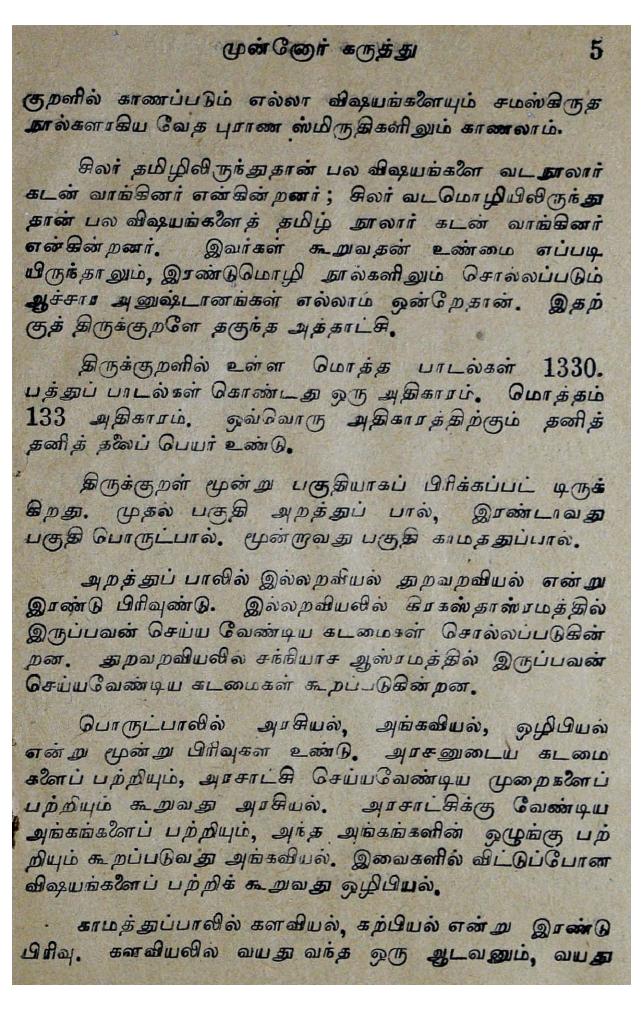 முன்னோர் கருத்து 5
குறளில் காணப்படும் எல்லா விஷயங்களையும் சமஸ்கிருத
நூல்களாகிய வேத புராண ஸ்மிருதிகளிலும் காணலாம்.
சிலர் தமிழிலிருந்துதான் பல விஷயங்களை வடநூலார்
கடன் வாங்கினர் என்கின்றனர் ; சிலர் வடமொழியிலிருந்து
தான் பல விஷயங்களைத் தமிழ் நூலார் கடன் வாங்கினர்
என்கின்றனர். இவர்கள் கூறுவதன் உண்மை எப்படி
யிருந்தாலும், இரண்டுமொழி நூல்களிலும் சொல்லப்படும்
ஆச்சார அனுஷ்டானங்கள் எல்லாம் ஒன்றேதான். இதற்
குத் திருக்குறளே தகுந்த அத்தாட்சி.
திருக்குறளில் உள்ள மொத்த பாடல்கள் 1330.
பத்துப் பாடல்கள் கொண்டது ஒரு அதிகாரம். மொத்தம்
133 அதிகாரம். ஒவ்வொரு அதிகாரத்திற்கும் தனித்
தனித் தலைப் பெயர் உண்டு.
திருக்குறள் மூன்று பகுதியாகப் பிரிக்கப்பட் டிருக்
கிறது. முதல் பகுதி அறத்துப் பால், இரண்டாவது
பகுதி பொருட்பால். மூன்றாவது பகுதி காமத்துப்பால்.
அறத்துப் பாலில் இல்லறவியல் துறவறவியல் என்று
இரண்டு பிரிவுண்டு. இல்லறவியலில் கிரகஸ்தாஸ்ரமத்தில்
இருப்பவன் செய்ய வேண்டிய கடமைகள் சொல்லப்படுகின்
றன. துறவறவியலில் சந்நியாச ஆஸ்ரமத்தில் இருப்பவன்
செய்யவேண்டிய கடமைகள் கூறப்படுகின்றன.
பொருட்பாலில் அரசியல், அங்கவியல், ஒழிபியல்
என்று மூன்று பிரிவுகள் உண்டு. அரசனுடைய கடமை
களைப் பற்றியும், அரசாட்சி செய்யவேண்டிய முறைகளைப்
பற்றியும் கூறுவது அரசியல். அரசாட்சிக்கு வேண்டிய
அங்கங்களைப் பற்றியும், அந்த அங்கங்களின் ஒழுங்கு பற்
றியும் கூறப்படுவது அங்கவியல். இவைகளில் விட்டுப்போன
விஷயங்களைப் பற்றிக் கூறுவது ஒழிபியல்.
காமத்துப்பாலில் களவியல், கற்பியல் என்று இரண்டு
பிரிவு. களவியலில் வயது வந்த ஒரு ஆடவனும், வயது